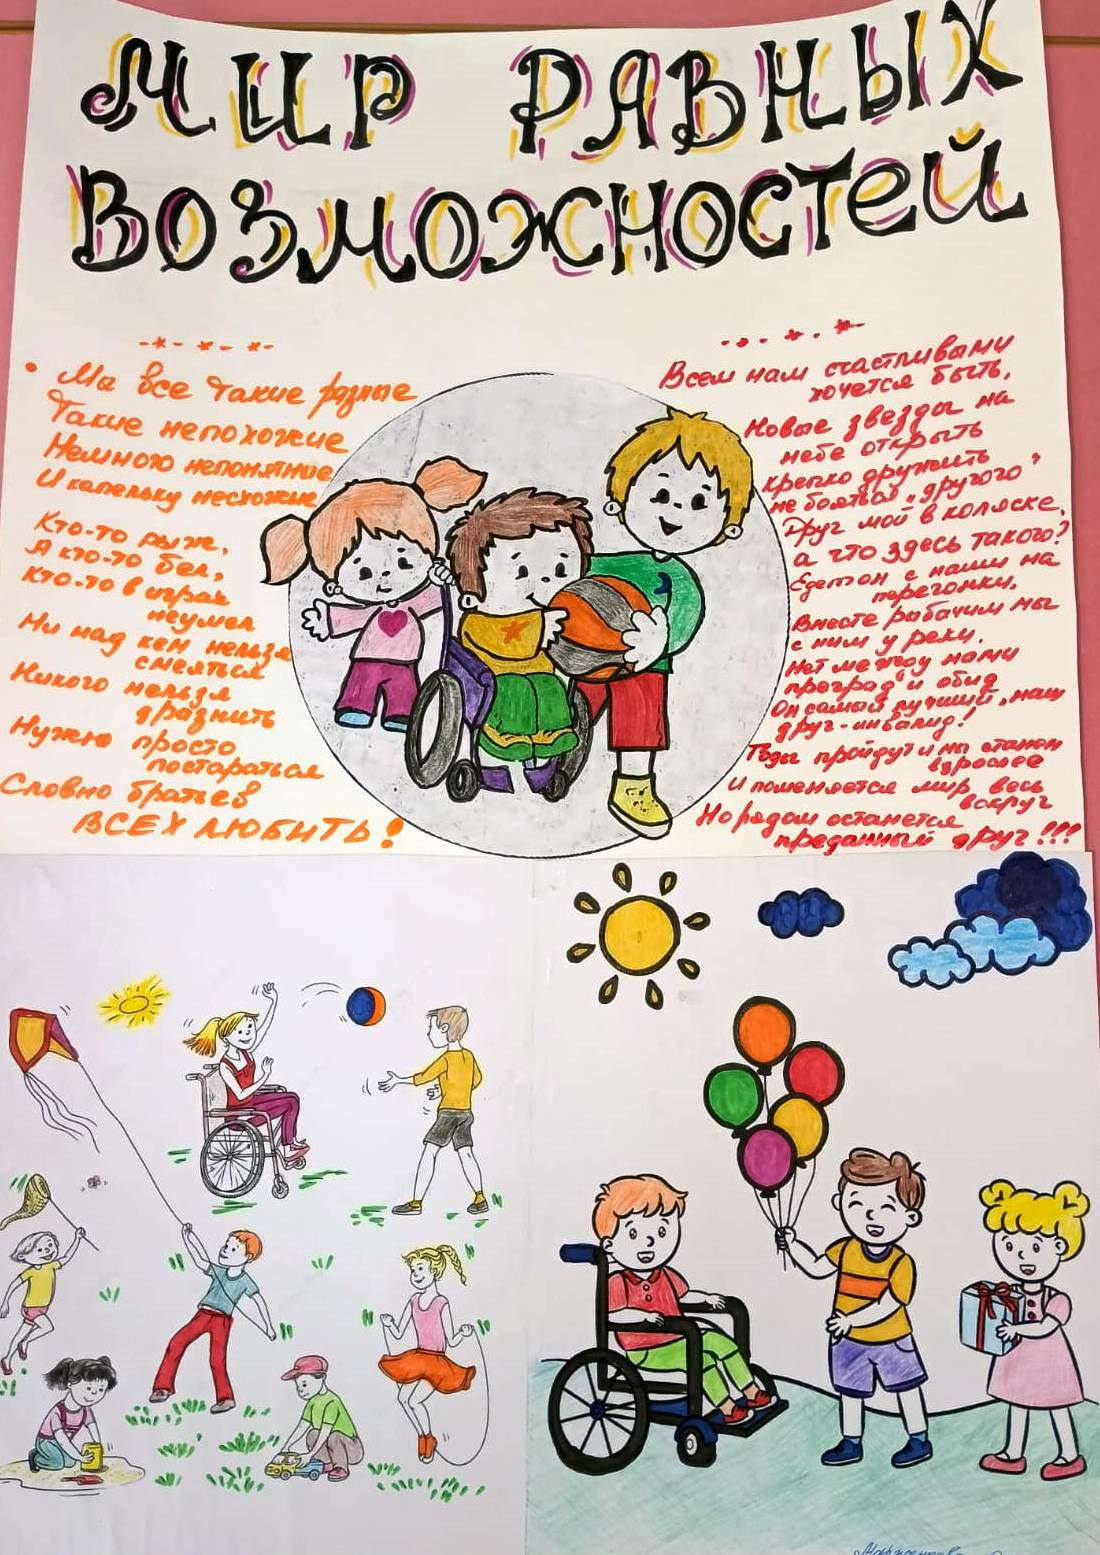 МИР РАВНЫХ
ВОЗМОЖНОСТЕЙ
Мы все такие разные
Такие непохожие
Немного непонятные
И капельку несхожие
Кто-то рыж,
А кто-то бел,
Кто-то в играх
неумел
Ни над кем нельзя
смеяться
Никого нельзя
дразнить
Нужно просто
постараться
Словно братьев
ВСЕХ ЛЮБИТЬ!
Всем нам счастливыми
хочется быть,
Новые звезды на
небе открыть
крепко дружить
не бояться "другого"
Друг мой в коляске,
а что здесь такого?
Едет он с нами на
перегонки,
Вместе рыбачим мы
с ним у реки.
Нет между нами
преград и обид
Он самый лучший, наш
друг-инвалид!
Годы пройдут и мы станем
взрослее
И поменяется мир весь
вокруг
Но рядом останется
преданный друг!!!